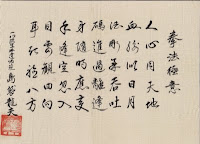 拳法極意
人心同天地
血脈似日月
法剛柔吞吐
碼進退離逢
身随時應変
手逢空則入
目要観四向
耳能聴八方
龍夫